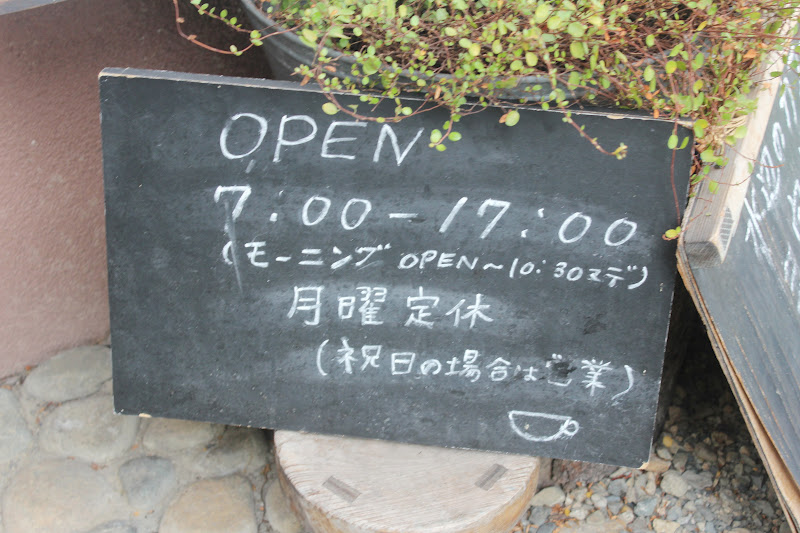 OPEN
7:00-17:00
(モーニング OPEN〜10:30マデ)
月曜定休
(祝日の場合は業)